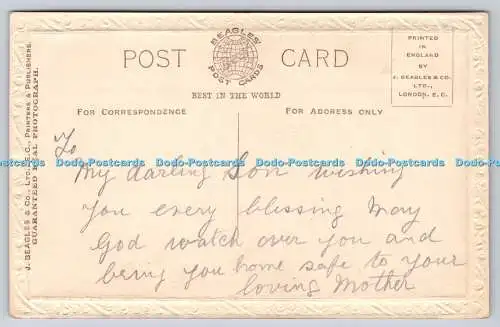 POST CARD
BEAGLES'
POST CARDS
BEST IN THE WORLD
PRINTED
IN
ENGLAND
BY
J. BEAGLES & CO.
LTD.,
LONDON. E.C.
FOR CORRESPONDENCE
FOR ADDRESS ONLY
J. BEAGLES & CO., LTD., E.C., PRINTERS & PUBLISHERS.
GUARANTEED REAL PHOTOGRAPH.
To
Dodo-Postcards Dodo-Postcards Dodo-Postcards Dodo-Postcards Dodo-Postcards
My darling Son wishing
you every blessing May
God watch over you and
bring you home safe to your
loving Mother